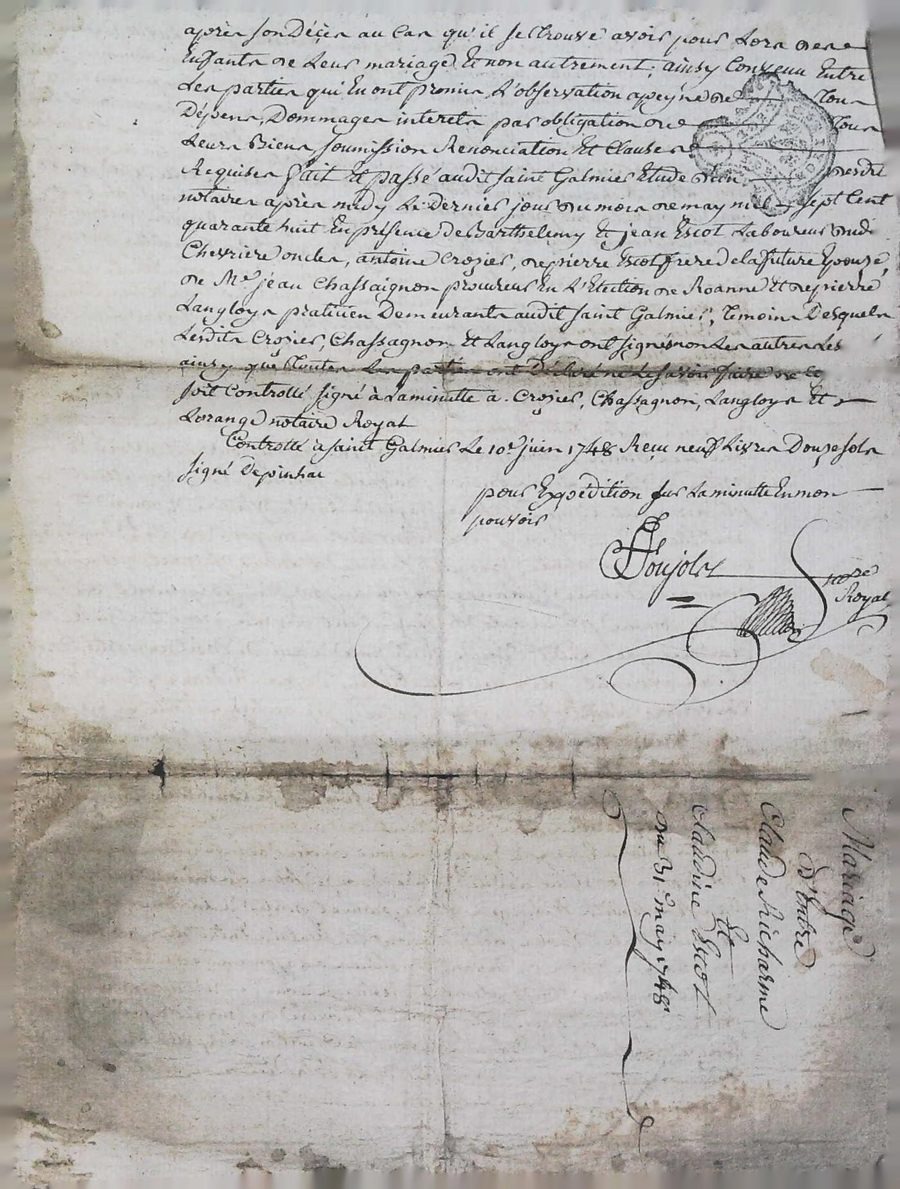 après son Déçès au Cas qu'il se trouve avoir pour Lors des
Enfants de Leur mariage Et non autrement, ainsy Convenu Entre
Les parties qui En ont promis L'observation a peyne de Tous
Dépens, Dommages interets par obligation de Tous
Leurs Biens soumission Renonciation Et Clauses
Requises fait Et passé audit saint Galmier Etude dudit
notaire après midy Le Dernier jour du mois de may mil sept Cent
quarante huit En présence de Barthelemy Et jean Escot Laboureur dud.
Chevrière oncles, antoine Crosier, de pierre Escot frere de la future Epouse,
de Me. jean Chassaignon procureur En L'Election de Roanne Et de pierre
Langloys praticien Demeurants audit saint Galmier, Temoins Desquels
Lesdits Crosier, Chassagnon Et Langloys ont signés non Les autres Les
ainsy que Toutes Les parties ont Déclaré ne Le savoir faire de Ce
soit Controllé signé à La minutte A. Crosier, Chassagnon, Langloys Et
Lorange notaire Royal
Controllé à saint Galmier Le 10e. juin 1748 Reçu neuf Livres Douze sols
signé Depinhac
pour Expédition sur La minutte En mon
pouvoir
Poujolet
no.re
Royal
Mariage
D'Entre
Claude Richarme
Et
Claudine Escot
du 31e. may 1748